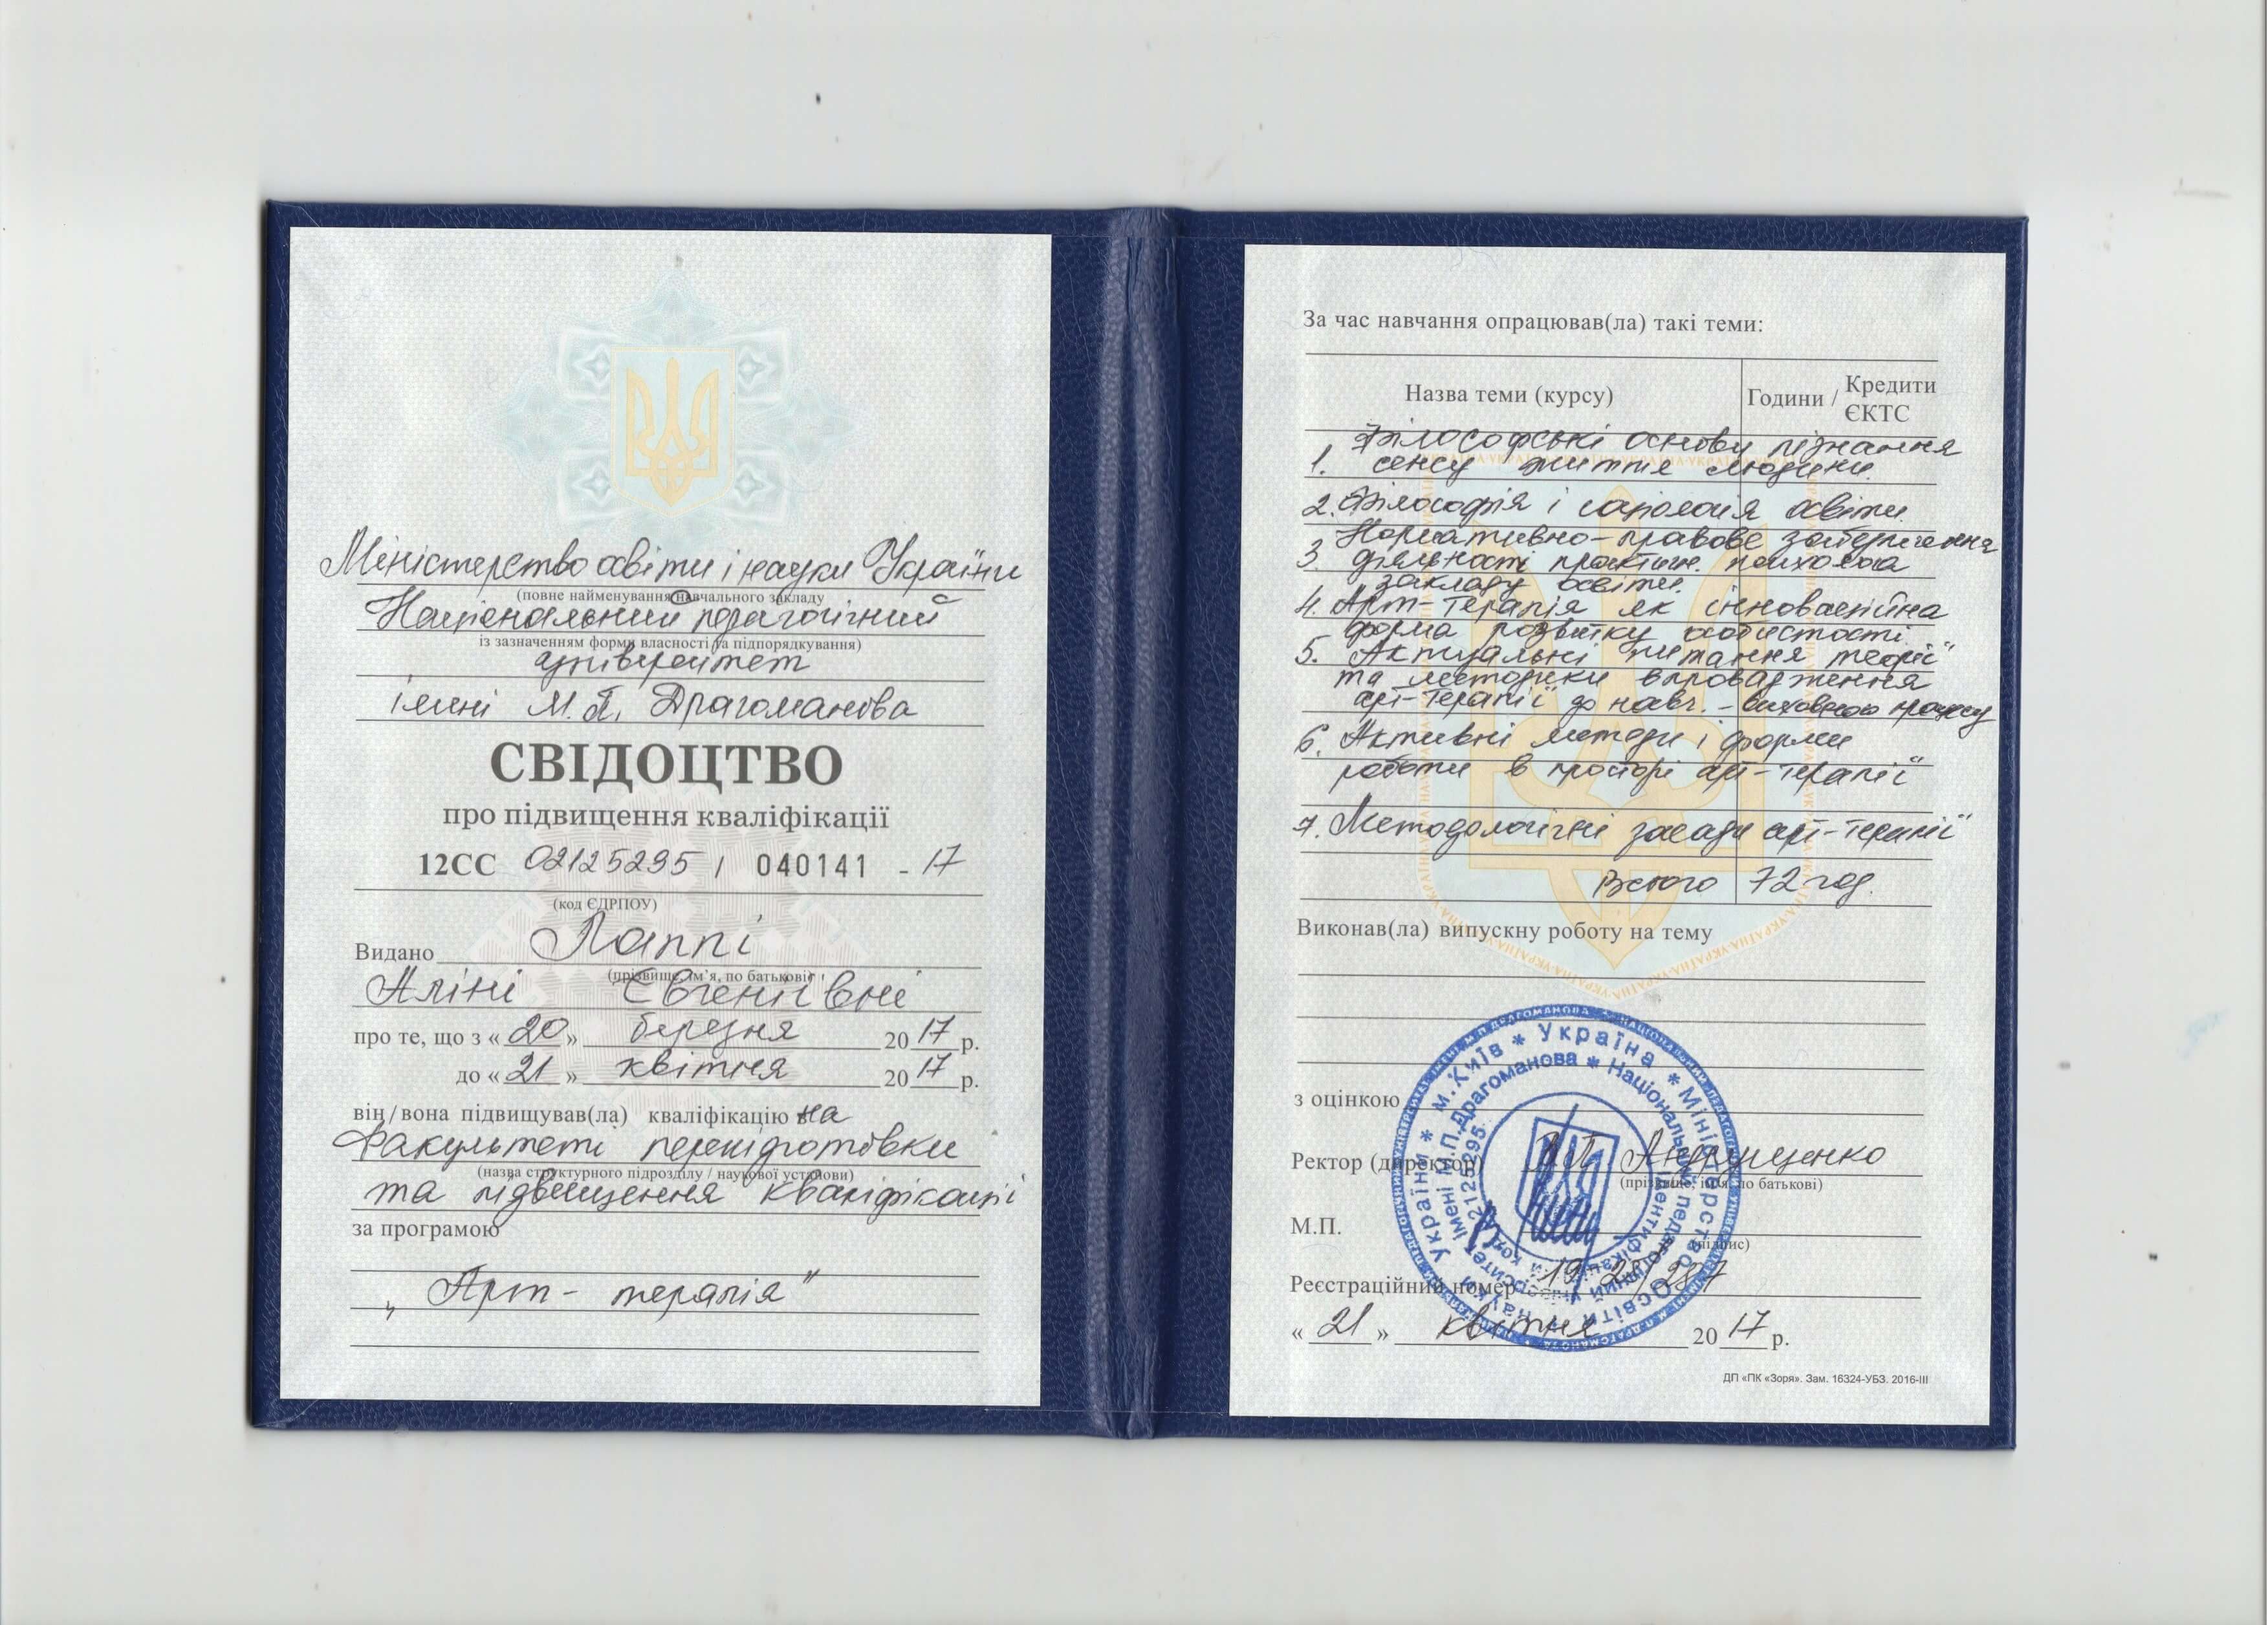 Міністерство освіти і науки України
(повне найменування навчального закладу
Національний педагогічний
із зазначенням форми власності та підпорядкування)
університет
імені М.П. Драгоманова
СВІДОЦТВО
про підвищення кваліфікації
12СС 02125295 / 040141 - 17
(код ЄДРПОУ)
Видано Лаппі
(прізвище, ім’я, по батькові)
Аліні Євгеніївні
про те, що з « 20 » березня 2017 р.
до « 21 » квітня 2017 р.
він/вона підвищував(ла) кваліфікацію на
Факультеті перепідготовки
(назва структурного підрозділу / наукової установи)
та підвищення кваліфікації
за програмою
„Арт- терапія"
За час навчання опрацював(ла) такі теми:
Назва теми (курсу) Години / Кредити ЄКТС
1. Філософські основи пізнання
сенсу життя людини.
2. Філософія і соціологія освіти.
3. Нормативно-правове забезпечення
діяльності практичн. психолога
закладу освіти.
4. Арт-терапія як інноваційна
форма розвитку особистості.
5. Актуальні питання теорії
та методики впровадження
арт-терапії до навч.-виховного процесу
6. Активні методи і форми
роботи в просторі арт-терапії
7. Методологічні засади арт-терапії
Всього 72 год.
Виконав(ла) випускну роботу на тему
з оцінкою
Ректор (директор) В.П. Андрущенко
(прізвище, ім’я, по батькові)
М.П.
(підпис)
Реєстраційний номер
« 21 » квітня 2017 р.
ДП «ПК «Зоря». Зам. 16324-УБЗ. 2016-III
* Україна * Міністерство освіти і науки України * м.Київ
* Національний педагогічний університет імені М.П.Драгоманова